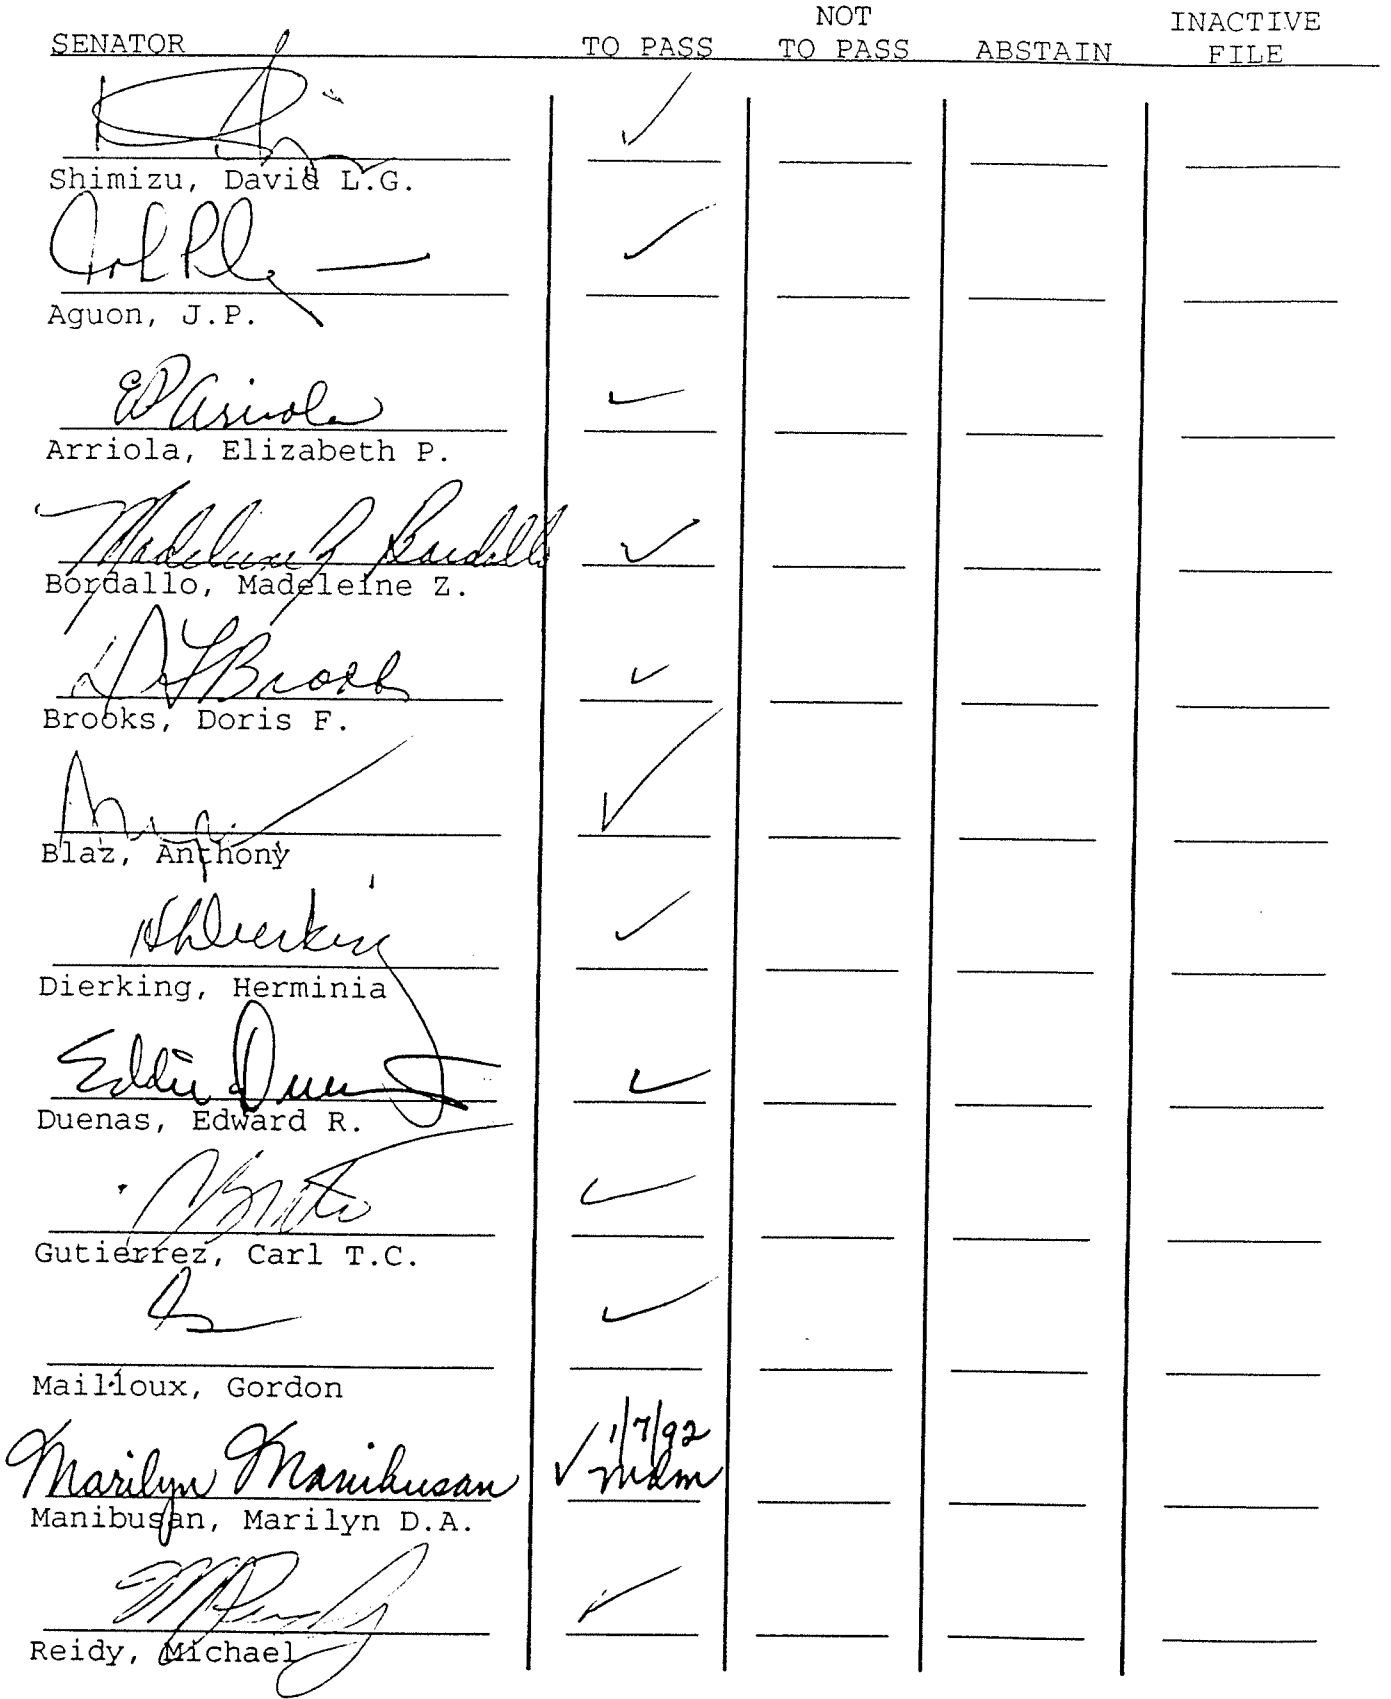 NOT INACTIVE
SENATOR TO PASS TO PASS ABSTAIN FILE
✓
Shimizu, David L.G.
✓
Aguon, J.P.
EP Arriola ✓
Arriola, Elizabeth P.
Madeleine Z Bordallo ✓
Bordallo, Madeleine Z.
D F Brooks ✓
Brooks, Doris F.
✓
Blaz, Anthony
H Dierking ✓
Dierking, Herminia
Eddie Duenas ✓
Duenas, Edward R.
✓
Gutierrez, Carl T.C.
✓
Mailloux, Gordon
1/7/92
Marilyn Manibusan ✓ mdm
Manibusan, Marilyn D.A.
M Reidy ✓
Reidy, Michael